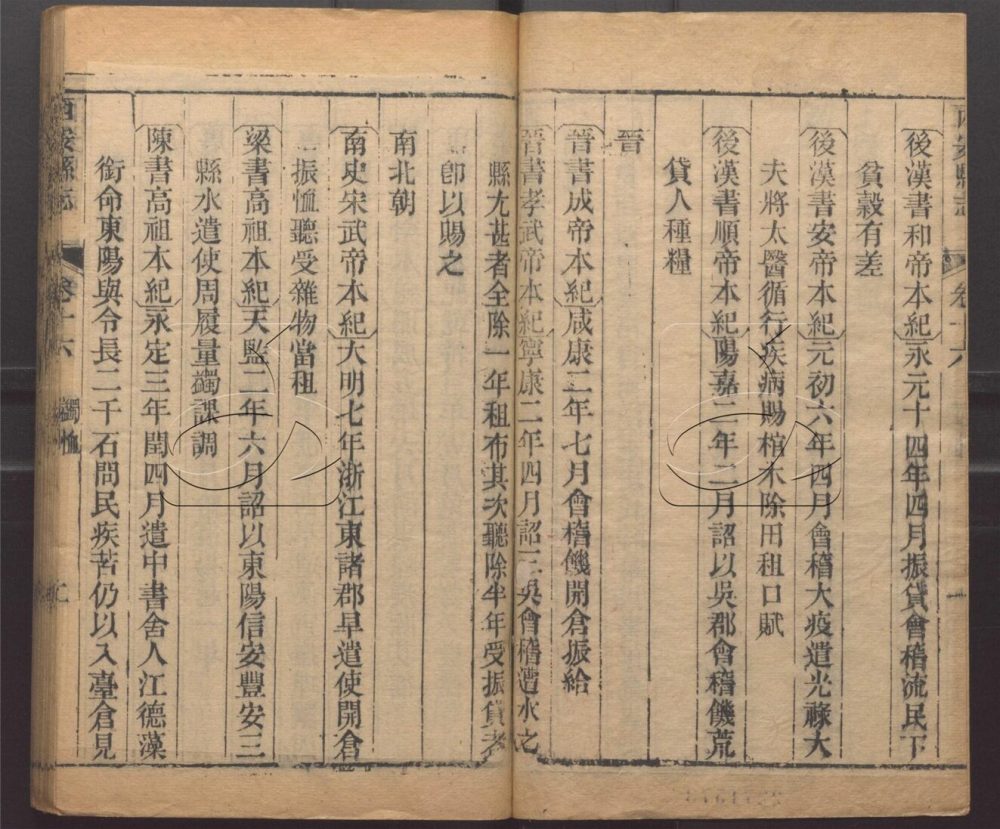 後漢書和帝本紀永元十四年四月振貸會稽流民下
貧穀有差
後漢書安帝本紀元初六年四月會稽大疫遣光祿大
夫將太醫循行疾病賜棺木除田租口賦
後漢書順帝本紀陽嘉二年二月詔以吳郡會稽饑荒
貸人種糧
晉
晉書成帝本紀咸康二年七月會稽饑開倉振給
晉書孝武帝本紀寧康二年四月詔三吳會稽遭水之
縣尤甚者全除一年租布其次聽除半年受振貸者
即以賜之
南北朝
南史宋武帝本紀大明七年浙江東諸郡旱遣使開倉
振恤聽受雜物當租
梁書高祖本紀天監二年六月詔以東陽信安豐安三
縣水遣使周履量蠲課調
陳書高祖本紀永定三年閏四月遣中書舍人江德藻
銜命東陽與令長二千石問民疾苦仍以入臺倉見
西安縣志 卷十六 蠲恤